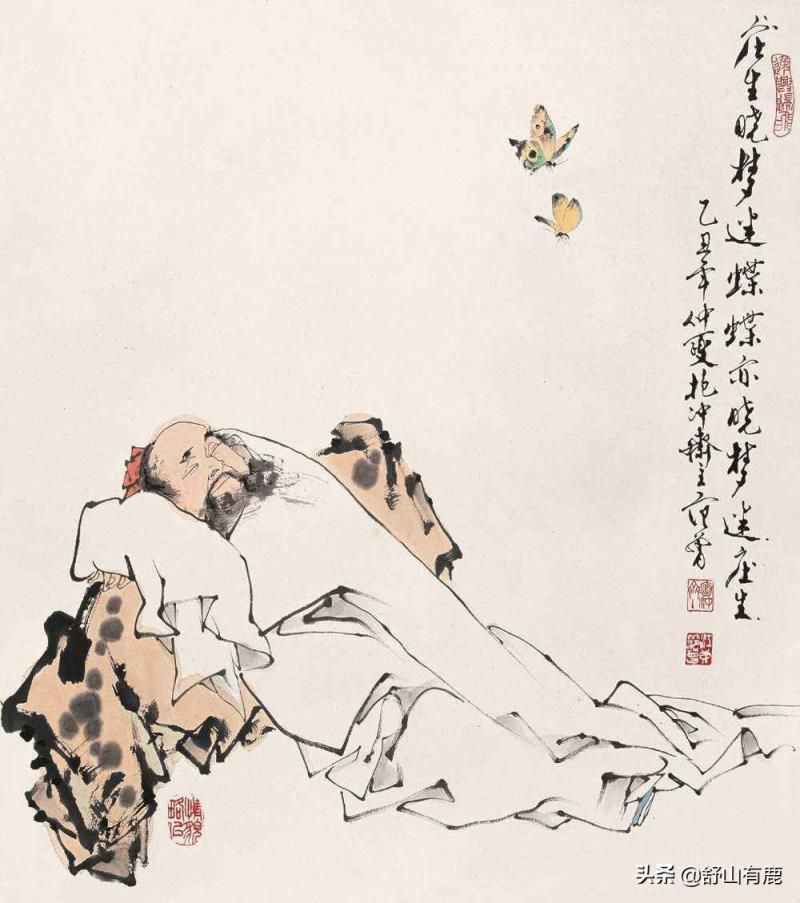 庄生晓梦迷蝶蝶亦晓梦迷庄生
乙丑年仲夏抱冲斋主范曾
头条 @舒山有鹿